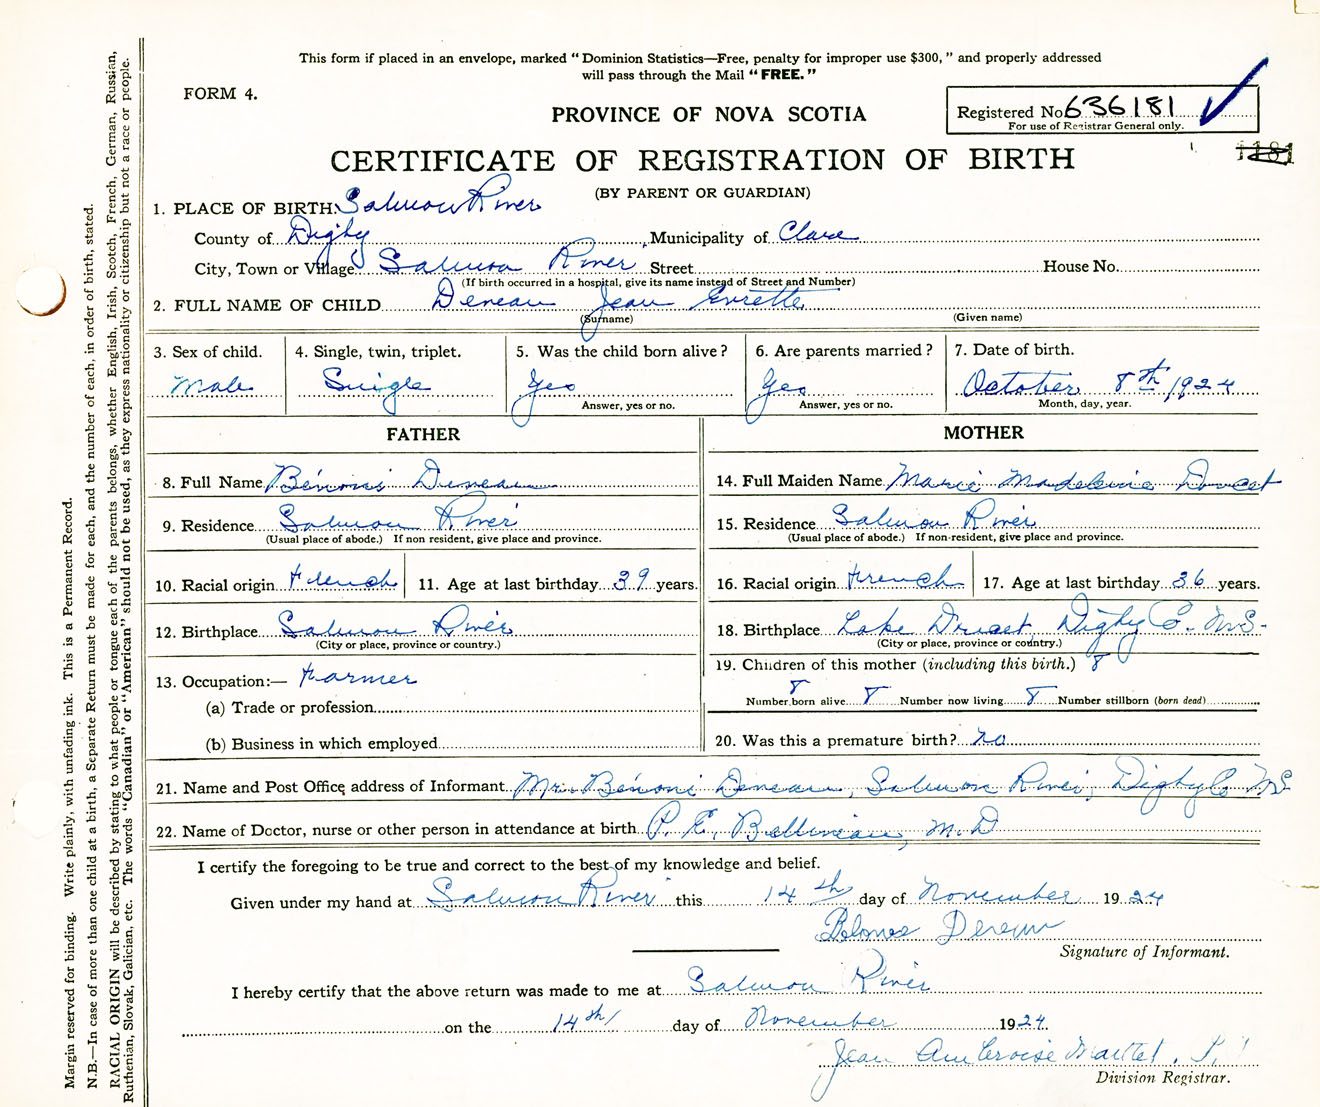 This form if placed in an envelope, marked "Dominion Statistics—Free, penalty for improper use $300," and properly addressed
will pass through the Mail "FREE."
FORM 4.
PROVINCE OF NOVA SCOTIA
Registered No. 636181
For use of Registrar General only.
1181
CERTIFICATE OF REGISTRATION OF BIRTH
(BY PARENT OR GUARDIAN)
1. PLACE OF BIRTH: Salmon River
County of Digby, Municipality of Clare
City, Town or Village Salmon River Street House No.
(If birth occurred in a hospital, give its name instead of Street and Number)
2. FULL NAME OF CHILD Deneau Jean Evrette
(Surname) (Given name)
3. Sex of child. 4. Single, twin, triplet. 5. Was the child born alive? 6. Are parents married? 7. Date of birth.
Male Single Yes Yes October 8th 1924
Answer, yes or no. Answer, yes or no. Month, day, year.
FATHER MOTHER
8. Full Name Bénoni Deneau 14. Full Maiden Name Marie Madeleine Doucet
9. Residence Salmon River 15. Residence Salmon River
(Usual place of abode.) If non resident, give place and province. (Usual place of abode.) If non-resident, give place and province.
10. Racial origin French 11. Age at last birthday 39 years. 16. Racial origin French 17. Age at last birthday 36 years.
12. Birthplace Salmon River 18. Birthplace Lake Doucet, Digby Co. N.S.
(City or place, province or country.) (City or place, province or country.)
13. Occupation:— Farmer 19. Children of this mother (including this birth.) 8
(a) Trade or profession Number born alive 8 Number now living 8 Number stillborn (born dead) 8
(b) Business in which employed 20. Was this a premature birth? no
21. Name and Post Office address of Informant Mr. Bénoni Deneau, Salmon River, Digby Co NS
22. Name of Doctor, nurse or other person in attendance at birth P. E. Belliveau, M.D
I certify the foregoing to be true and correct to the best of my knowledge and belief.
Given under my hand at Salmon River this 14th day of November 1924
Signature of Informant.
I hereby certify that the above return was made to me at Salmon River
on the 14th day of November 1924.
Jean Ambroise
Division Registrar.
Margin reserved for binding. Write plainly, with unfading ink. This is a Permanent Record.
N.B.—In case of more than one child at a birth, a Separate Return must be made for each, and the number of each, in order of birth, stated.
RACIAL ORIGIN will be described by stating to what people or tongue each of the parents belongs, whether English, Irish, Scotch, French, German, Russian,
Ruthenian, Slovak, Galician, etc. The words "Canadian" or "American" should not be used, as they express nationality or citizenship but not a race or people.